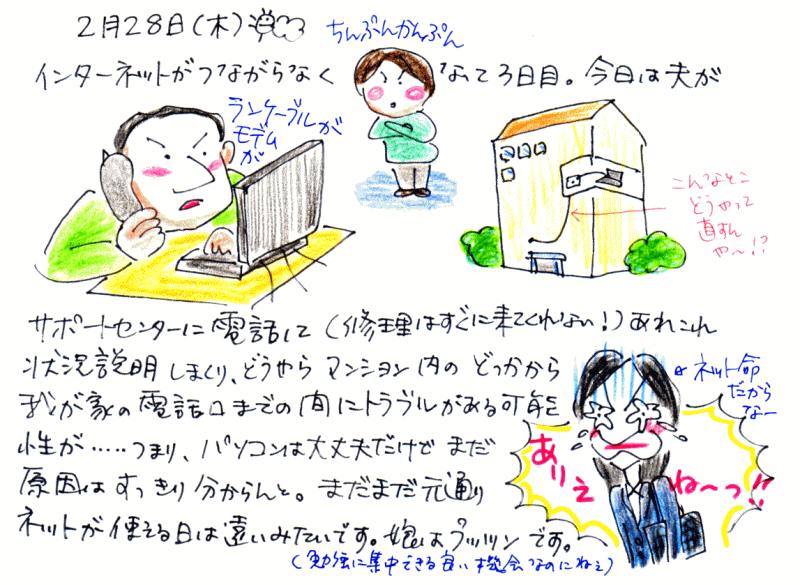 2月28日(木)
ちんぷんかんぷん
インターネットがつながらなくなって3日目。今日は夫が
ランケーブルが
モデムが
こんなとこ
どうやって
直すん
や〜!?
サポートセンターに電話して(修理はすぐに来てくれない!)あれこれ
状況説明しまくり、どうやらマンション内のどっかから
我が家の電話口までの間にトラブルがある可能
性が‥‥‥つまり、パソコンは大丈夫だけどまだ
原因はすっきり分からんと。まだまだ元通り
ネットが使える日は遠いみたいです。娘はプッツンです。
(勉強に集中できる良い機会なのにねぇ)
ネット命
だから
なー
ありえ
ね〜っ!!